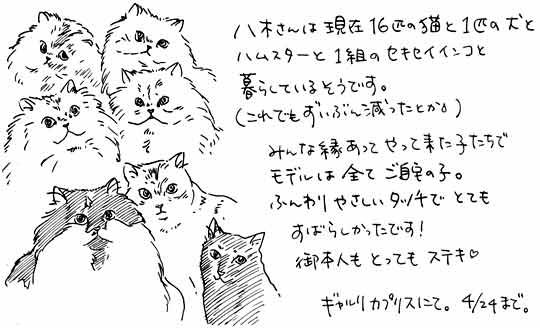 八木さんは現在16匹の猫と1匹の犬と
ハムスターと1組のセキセイインコと
暮らしているそうです。
(これでもずいぶん減ったとか♪)
みんな縁あってやって来た子たちで
モデルは全てご自宅の子。
ふんわりやさしいタッチでとても
すばらしかったです!
御本人もとってもステキ♡
ギャルリカプリスにて。4/24まで。